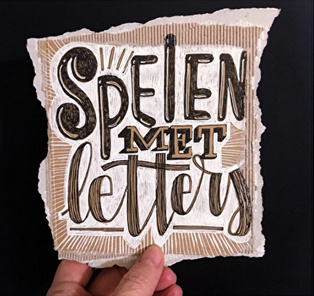 SPELEN
MET
letters